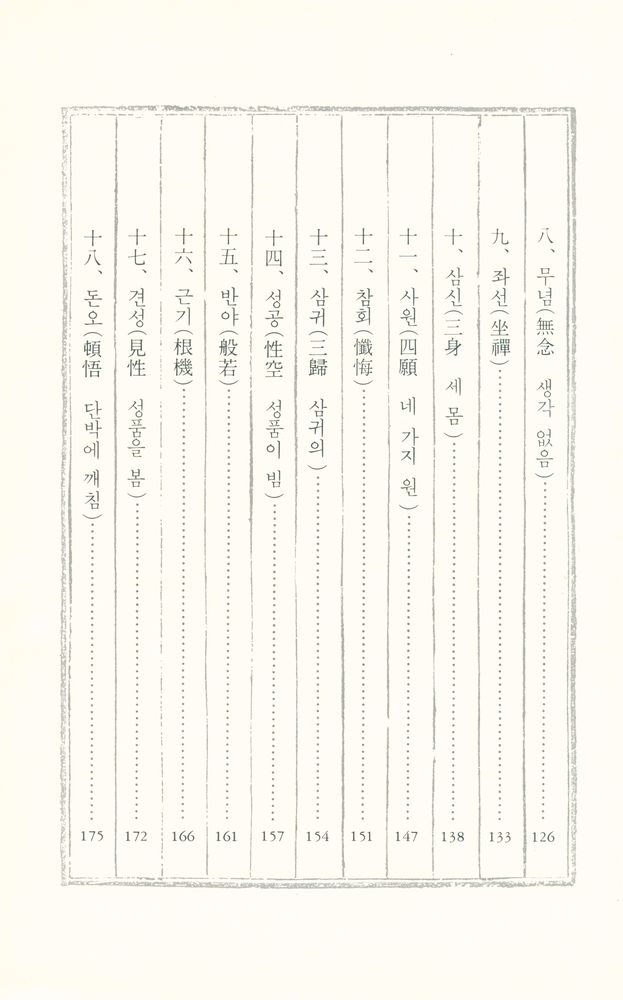 八、무념(無念 생각 없음)……126
九、좌선(坐禪)……133
十、삼신(三身 세 몸)……138
十一、사원(四願 네 가지 원)……147
十二、참회(懺悔)……151
十三、삼귀(三歸 삼귀의)……154
十四、성공(性空 성품이 빔)……157
十五、반야(般若)……161
十六、근기(根機)……166
十七、견성(見性 성품을 봄)……172
十八、돈오(頓悟 단박에 깨침)……175